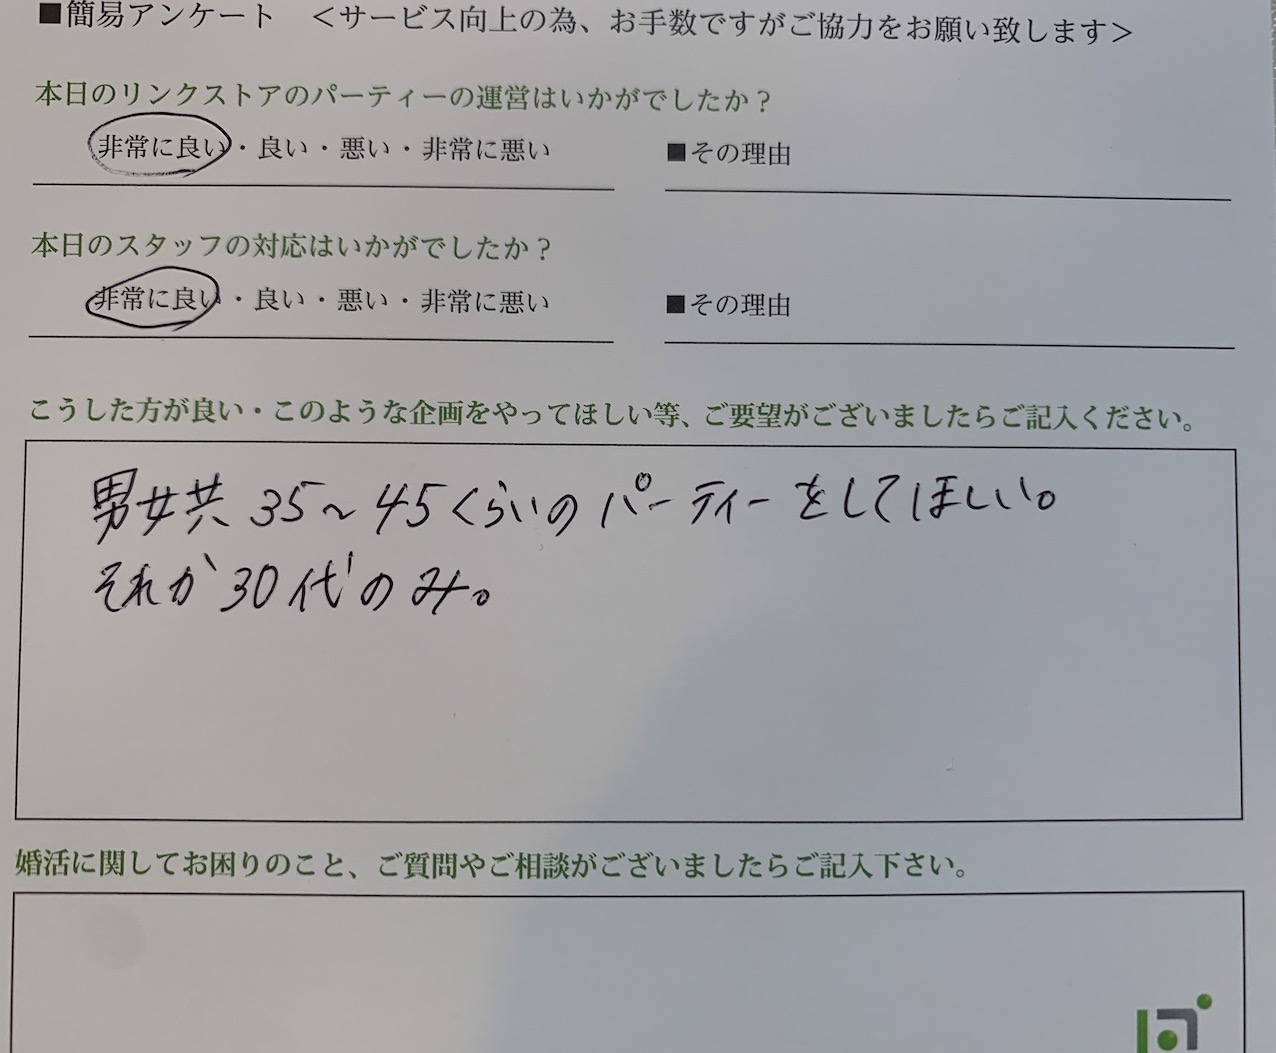 ■簡易アンケート ＜サービス向上の為、お手数ですがご協力をお願い致します＞
本日のリンクストアのパーティーの運営はいかがでしたか？
非常に良い・良い・悪い・非常に悪い ■その理由
本日のスタッフの対応はいかがでしたか？
非常に良い・良い・悪い・非常に悪い ■その理由
こうした方が良い・このような企画をやってほしい等、ご要望がございましたらご記入ください。
男女共 35～45くらいのパーティーをしてほしい。
それか 30代のみ。
婚活に関してお困りのこと、ご質問やご相談がございましたらご記入下さい。